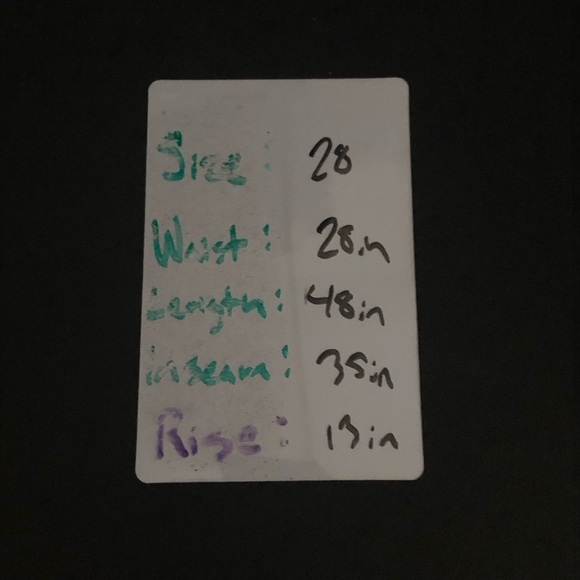 Size: 28
Waist: 28in
Length: 48in
inseam: 35in
Rise: 13in